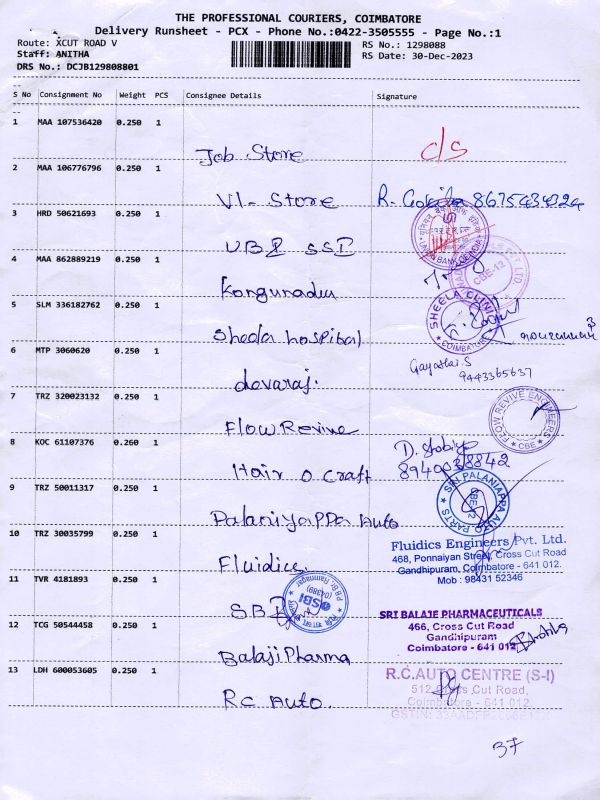 THE PROFESSIONAL COURIERS, COIMBATORE
Delivery Runsheet - PCX - Phone No.:0422-3505555 - Page No.:1
Route: XCUT ROAD V
RS No.: 1298088
Staff: ANITHA
RS Date: 30-Dec-2023
DRS No.: DCJB129808801
S No Consignment No Weight PCS Consignee Details Signature
1 MAA 107536420 0.250 1
Job Store c/s
2 MAA 106776796 0.250 1
VI- Store R. Gokila 8675434324
3 HRD 50621693 0.250 1
UBI SSI
4 MAA 862889219 0.250 1
CBE-12
Kongunadu
5 SLM 336182762 0.250 1
SHEELA CLINIC
COIMBATORE
Sheela hospital
6 MTP 3060620 0.250 1
Gayathri.S
9443365637
devaraj.
7 TRZ 320023132 0.250 1
FLOW REVIVE ENGINEERS
CBE
Flow Revive
8 KOC 61107376 0.260 1
8940038842
Hair O Craft
9 TRZ 50011317 0.250 1
SRI PALANIAPPA AUTO PARTS
Palaniyappa Auto
10 TRZ 30035799 0.250 1
Fluidics Engineers Pvt. Ltd.
468, Ponnaiyan Street, Cross Cut Road
Gandhipuram, Coimbatore - 641 012.
Mob : 98431 52346
Fluidics
11 TVR 4181893 0.250 1
SBI
12 TCG 50544458 0.250 1
SRI BALAJE PHARMACEUTICALS
466, Cross Cut Road
Gandhipuram
Coimbatore - 641 012
Balaji Pharma
13 LDH 600053605 0.250 1
R.C.AUTO CENTRE (S-I)
512, Cross Cut Road,
Coimbatore - 641 012
RC Auto.
37